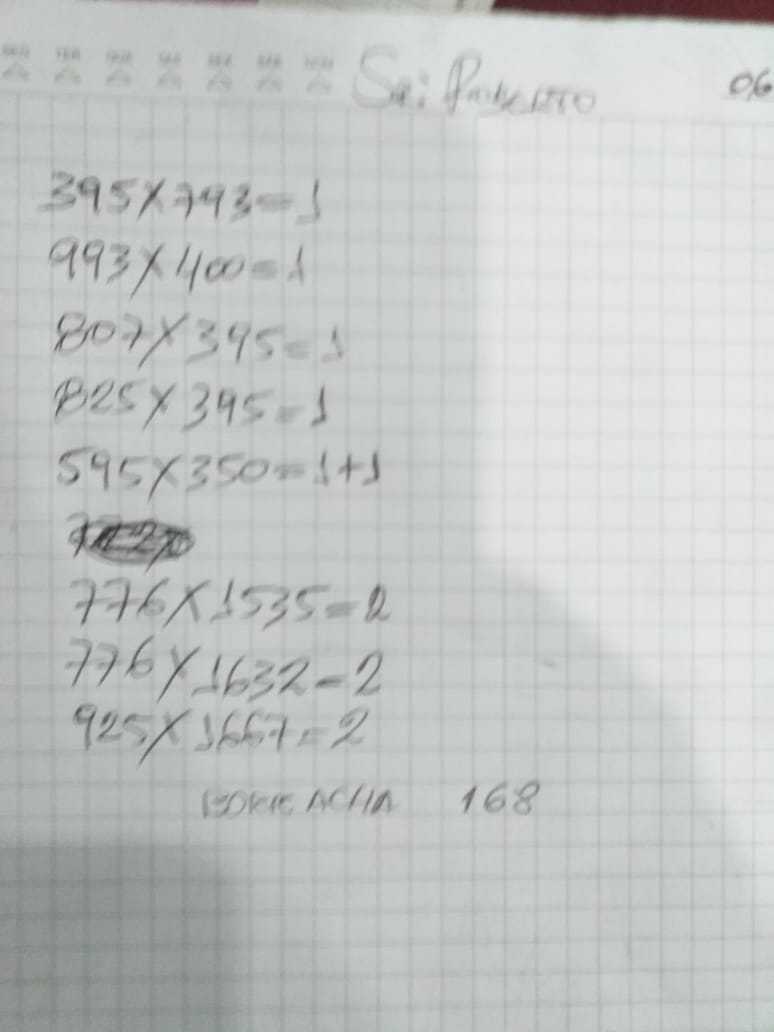 Sr: Roberto 06
395X793=1
993X400=1
807X395=1
825X395=1
595X350=1+1
776X1535=2
776X1632=2
925X1667=2
BORRACHA 168